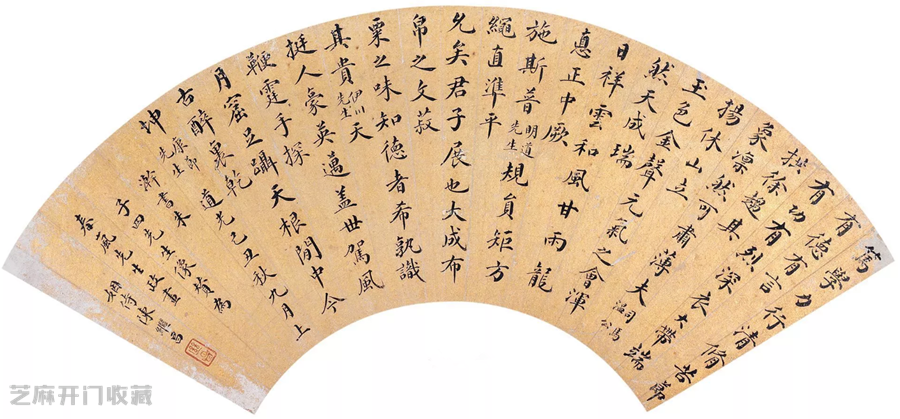 篤學力行清脩苦節
有德有言
有功有烈深衣大帶端
拱徐趨其
象凜然可肅薄夫司馬溫公
揚休山立
玉色金聲元氣之會渾
然天成瑞
日祥雲和風甘雨龍
悳正中厥
施斯普明道先生規員矩方
繩直準平
允矣君子展也大成布
帛之文菽
粟之味知德者希孰識
其貴伊川先生天
挺人豪英邁蓋世駕風
鞭霆手探
月窟足躡天根閒中今
古醉裏乾
坤康節先生道光己丑秋九月上
澣書朱
子四先生像贊為
春嵐先生政畫姻侍陳繼昌
芝麻开门收藏